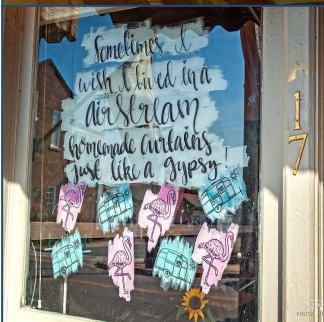 Sometimes I
wish I lived in a
airstream
homemade curtains
just like a gypsy!
17